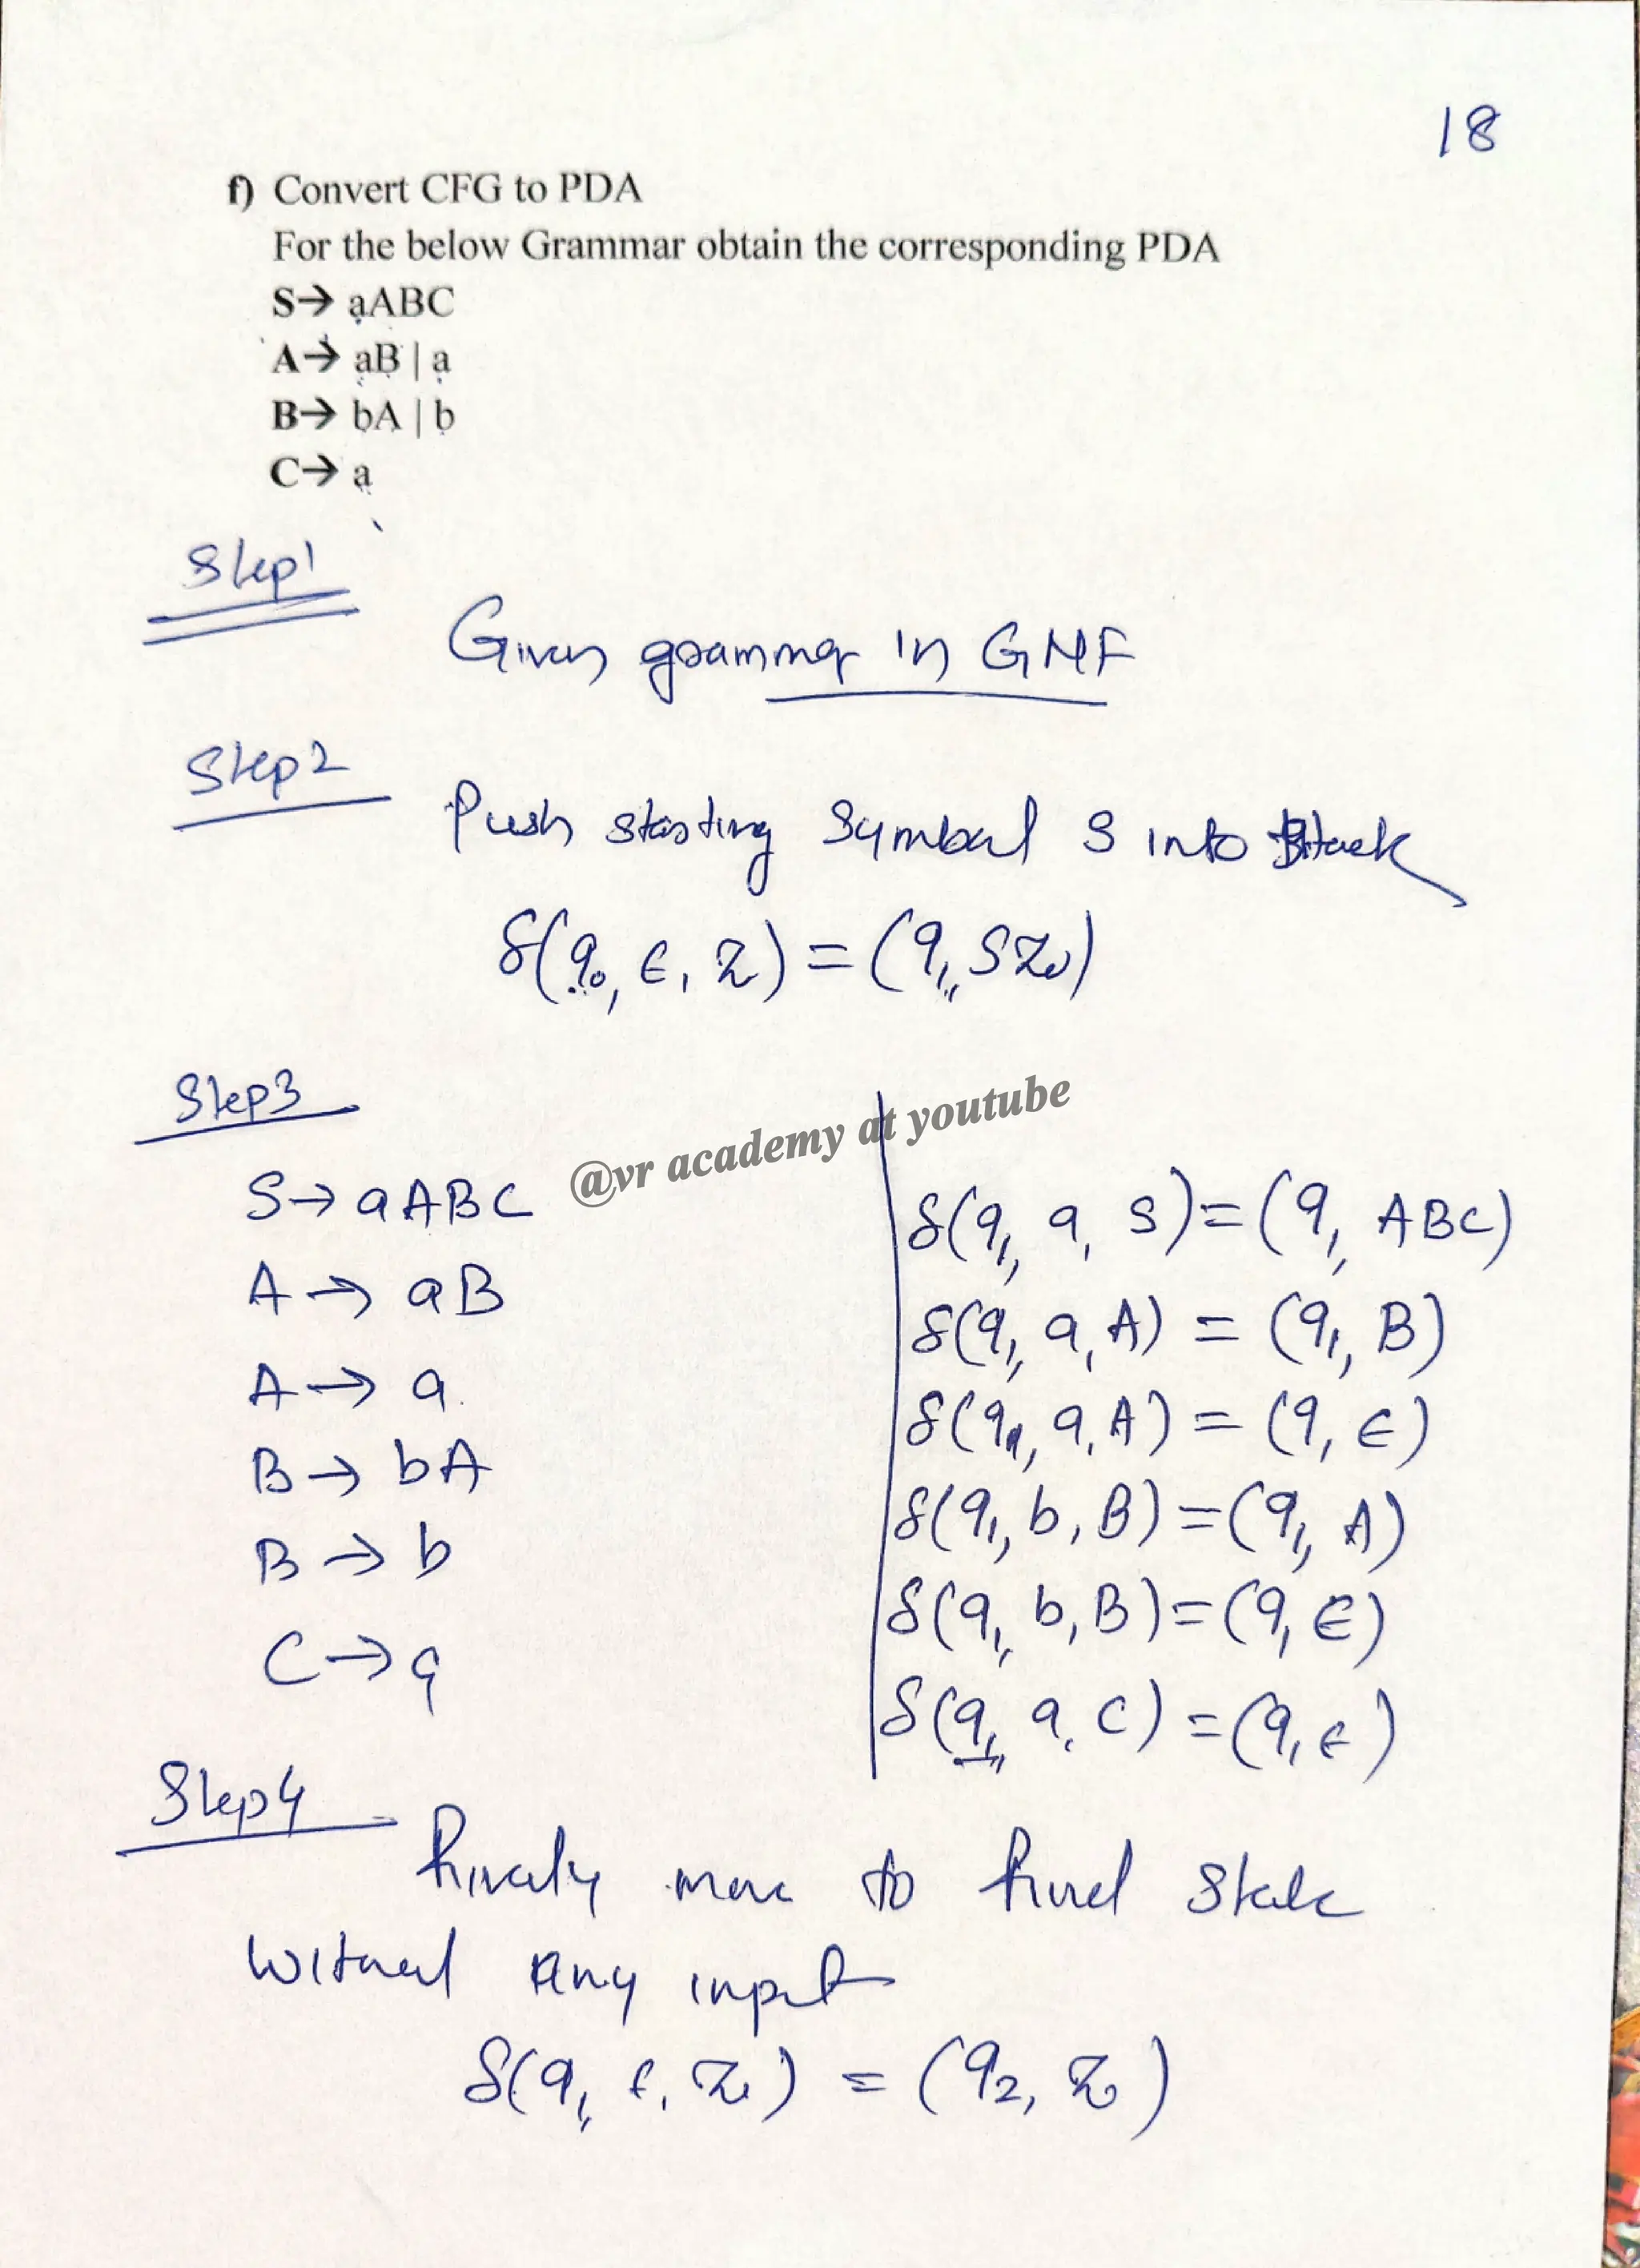 18
f) Convert CFG to PDA
For the below Grammar obtain the corresponding PDA
S→ aABC
A→ aB | a
B→ bA | b
C→ a
Step1
Given grammar in GNF
Step2
Push starting Symbol S into Stack
δ(q₀, ε, z) = (q₁, S z₀)
Step3
@vr academy at youtube
S→ aABC δ(q₁, a, S) = (q₁, ABC)
A → aB δ(q₁, a, A) = (q₁, B)
A → a δ(q₁, a, A) = (q₁, ε)
B → bA δ(q₁, b, B) = (q₁, A)
B → b δ(q₁, b, B) = (q₁, ε)
C → a δ(q₁, a, C) = (q₁, ε)
Step4
Finaly move to final state
without any input
δ(q₁, ε, z₀) = (q₂, z₀)